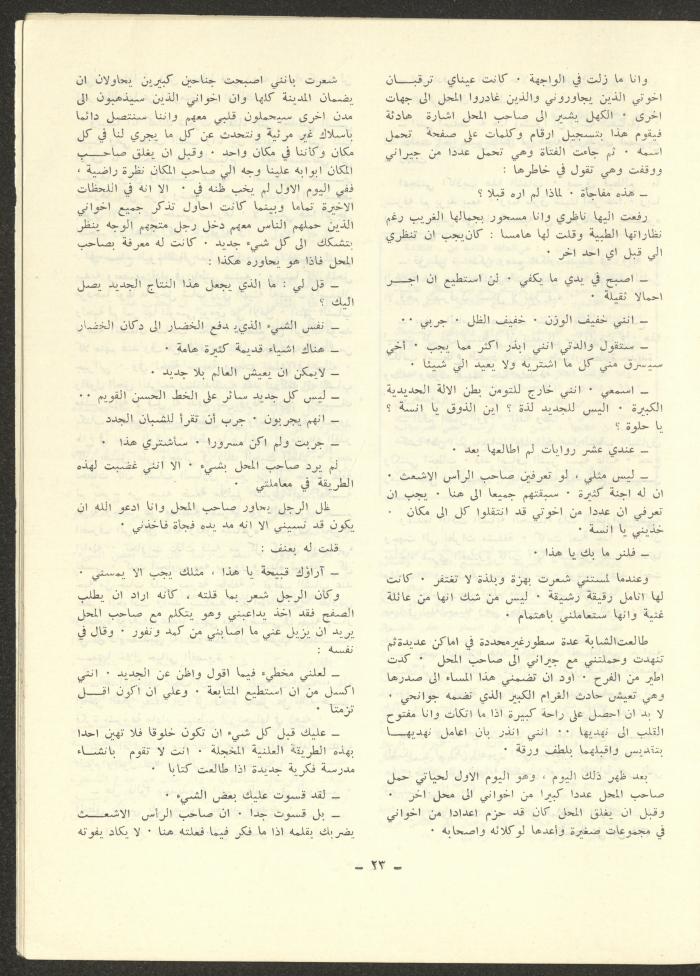 وانا ما زلت في الواجهة ٠ كانت عيناي ترقبـــان
اخوتي الذين يجاوروني والذين غادروا المحل الى جهات
اخرى ٠ الكهل يشير الى صاحب المحل اشارة هادئة
فيقوم هذا بتسجيل ارقام وكلمات على صفحة تحمل
اسمه ٠ ثم جاءت الفتاة وهي تحمل عددا من جيراني
ووقفت وهي تقول في خاطرها :
ــ هذه مفاجأة ٠ لماذا لم اره قبلا ؟
رفعت اليها ناظري وانا مسحور بجمالها الغريب رغم
نظاراتها الطبية وقلت لها هامسا : كان يجب ان تنظري
الي قبل اي احد اخر ٠
ــ اصبح في يدي ما يكفي ٠ لن استطيع ان اجـــر
احمالا ثقيلة ٠
ــ انني خفيف الوزن ٠ خفيف الظل ٠ جربي ٠٠
ــ ستقول والدتي انني ابذر اكثر مما يجب ٠ أخي
سيسرق مني كل ما اشتريه ولا يعيد الي شيئا ٠
ــ اسمعي ٠ انني خارج للتو من بطن الالة الحديدية
الكبيرة ٠ اليس للجديد لذة ؟ اين الذوق يا انسة ؟
يا حلوة ؟
ــ عندي عشر روايات لم اطالعها بعد ٠
ــ ليس مثلي ، لو تعرفين صاحب الرأس الاشعث ٠
ان له اجنة كثيرة ٠ سبقتهم جميعا الى هنا ٠ يجب ان
تعرفي ان عددا من اخوتي قد انتقلوا كل الى مكان ٠
خذيني يا انسة ٠
ــ فلنر ما بك يا هذا ٠
وعندما لمستني شعرت بهزة وبلذة لا تغتفر ٠ كانت
لها انامل رقيقة رشيقة ٠ ليس من شك انها من عائلة
غنية وانها ستعاملني باهتمام ٠
طالعت الشابة عدة سطور غير محددة في اماكن عديدة ثم
تنهدت وحملتني مع جيراني الى صاحب المحل ٠ كدت
اطير من الفرح ٠ اود ان تضمني هذا المساء الى صدرها
وهي تعيش حادث الغرام الكبير الذي تضمه جوانحي ٠
لا بد ان احصل على راحة كبيرة اذا ما اتكأت وانا مفتوح
القلب الى نهديها ٠٠ انني انذر بان اعامل نهديهـــا
بتقديس واقبلهما بلطف ورقة ٠
بعد ظهر ذلك اليوم ، وهو اليوم الاول لحياتي حمل
صاحب المحل عددا كبيرا من اخواني الى محل اخر ٠
وقبل ان يغلق المحل كان قد حزم اعدادا من اخواني
في مجموعات صغيرة وأعدها لوكلائه واصحابه ٠
شعرت بانني اصبحت جناحين كبيرين يحاولان ان
يضمان المدينة كلها وان اخواني الذين سيذهبون الى
مدن اخرى سيحملون قلبي معهم واننا سنتصل دائما
باسلاك غير مرئية ونتحدث عن كل ما يجري لنا في كل
مكان وكأننا في مكان واحد ٠ وقبل ان يغلق صاحــب
المكان ابوابه علينا وجه الي صاحب المكان نظرة راضية ،
ففي اليوم الاول لم يخب ظنه في ٠ الا انه في اللحظات
الاخيرة تماما وبينما كانت احاول تذكر جميع اخواني
الذين حملهم الناس معهم دخل رجل متجهم الوجه ينظر
بتشكك الى كل شيء جديد ٠ كانت له معرفة بصاحب
المحل فاذا هو يحاوره هكذا :
ــ قل لي : ما الذي يجعل هذا النتاج الجديد يصل
اليك ؟
ــ نفس الشيء الذي يدفع الخضار الى دكان الخضار
ــ هناك اشياء قديمة كثيرة هامة ٠
ــ لايمكن ان يعيش العالم بلا جديد ٠
ــ ليس كل جديد سائر على الخط الحسن القويم ٠٠
ــ انهم يجربون ٠ جرب أن تقرأ للشبان الجدد
ــ جربت ولم اكن مسرورا ٠ سأشتري هذا ٠
لم يرد صاحب المحل بشيء ٠ الا انني غضبت لهذه
الطريقة في معاملتي ٠
ظل الرجل يحاور صاحب المحل وانا ادعو الله ان
يكون قد نسيني الا انه مد يده فجأة فاخذني ٠
قلت له بعنف :
ــ آراؤك قبيحة يا هذا ، مثلك يجب الا يمسني ٠
وكان الرجل شعر بما قلته ، كأنه اراد ان يطلب
الصفح فقد اخذ يداعبني وهو يتكلم مع صاحب المحل
يريد ان يزيل عني ما اصابني من كمد ونفور ٠ وقال في
نفسه :
ــ لعلني مخطيء فيما اقول واظن عن الجديد ٠ انني
اكسل من ان استطيع المتابعة ٠ وعلي ان اكون اقـــل
تزمتا ٠
ــ عليك قبل كل شيء ان تكون خلوقا فلا تهين احدا
بهذه الطريقة العلنية المخجلة ٠ انت لا تقوم بانشـاء
مدرسة فكرية جديدة اذا طالعت كتابا ٠
ــ لقد قسوت عليك بعض الشيء ٠
ــ بل قسوت جدا ٠ ان صاحب الرأس الاشعــث
يضربك بقلمه اذا ما فكر فيما فعلته هنا ٠ لا يكاد يفوته
ــ ٢٣ ــ